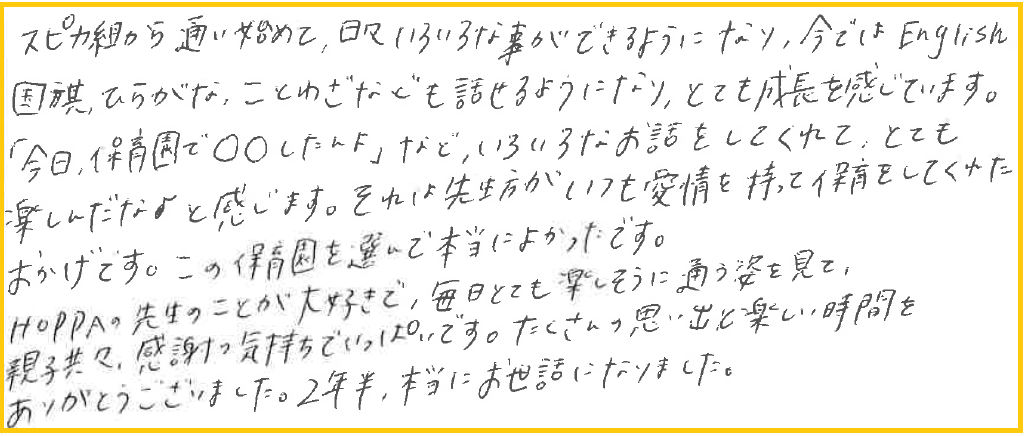 スピカ組から通い始めて、日々いろいろな事ができるようになり、今ではEnglish
国旗、ひらがな、ことわざなども話せるようになり、とても成長を感じています。
「今日、保育園で〇〇したんよ」など、いろいろなお話をしてくれて、とても
楽しんだなぁと感じます。それは先生方がいつも愛情を持って保育をしてくれた
おかげです。この保育園を選んで本当によかったです。
HOPPAの先生のことが大好きで、毎日とても楽しそうに通う姿を見て、
親子共々、感謝の気持ちでいっぱいです。たくさんの思い出と楽しい時間を
ありがとうございました。2年半、本当にお世話になりました。